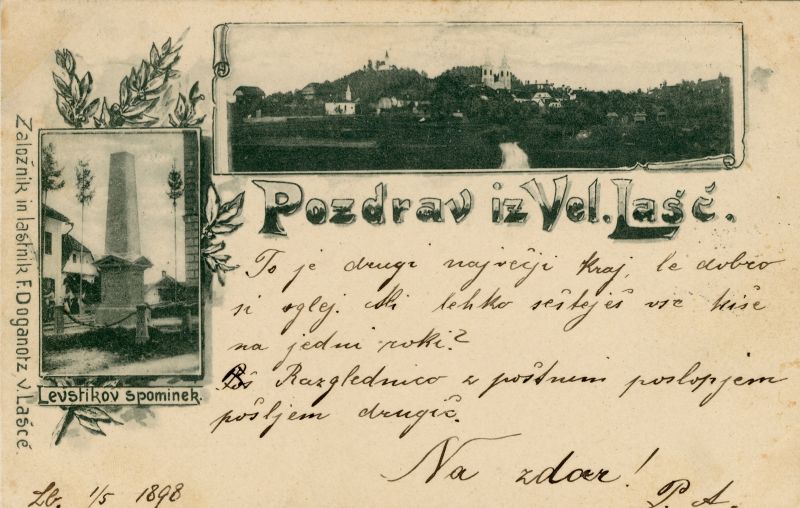 Pozdrav iz Vel. Lašč.
Založnik in laštnik F. Doganotz, v Lašče.
Levstikov spominek.
To je drugi največji kraj, le dobro
si oglej. Ali lehko sešteješ vse hiše
na jedni roki?
Razglednico z poštnim poslopjem
pošljem drugič.
Na zdar!
P. A.
Lb. 1/5 1898